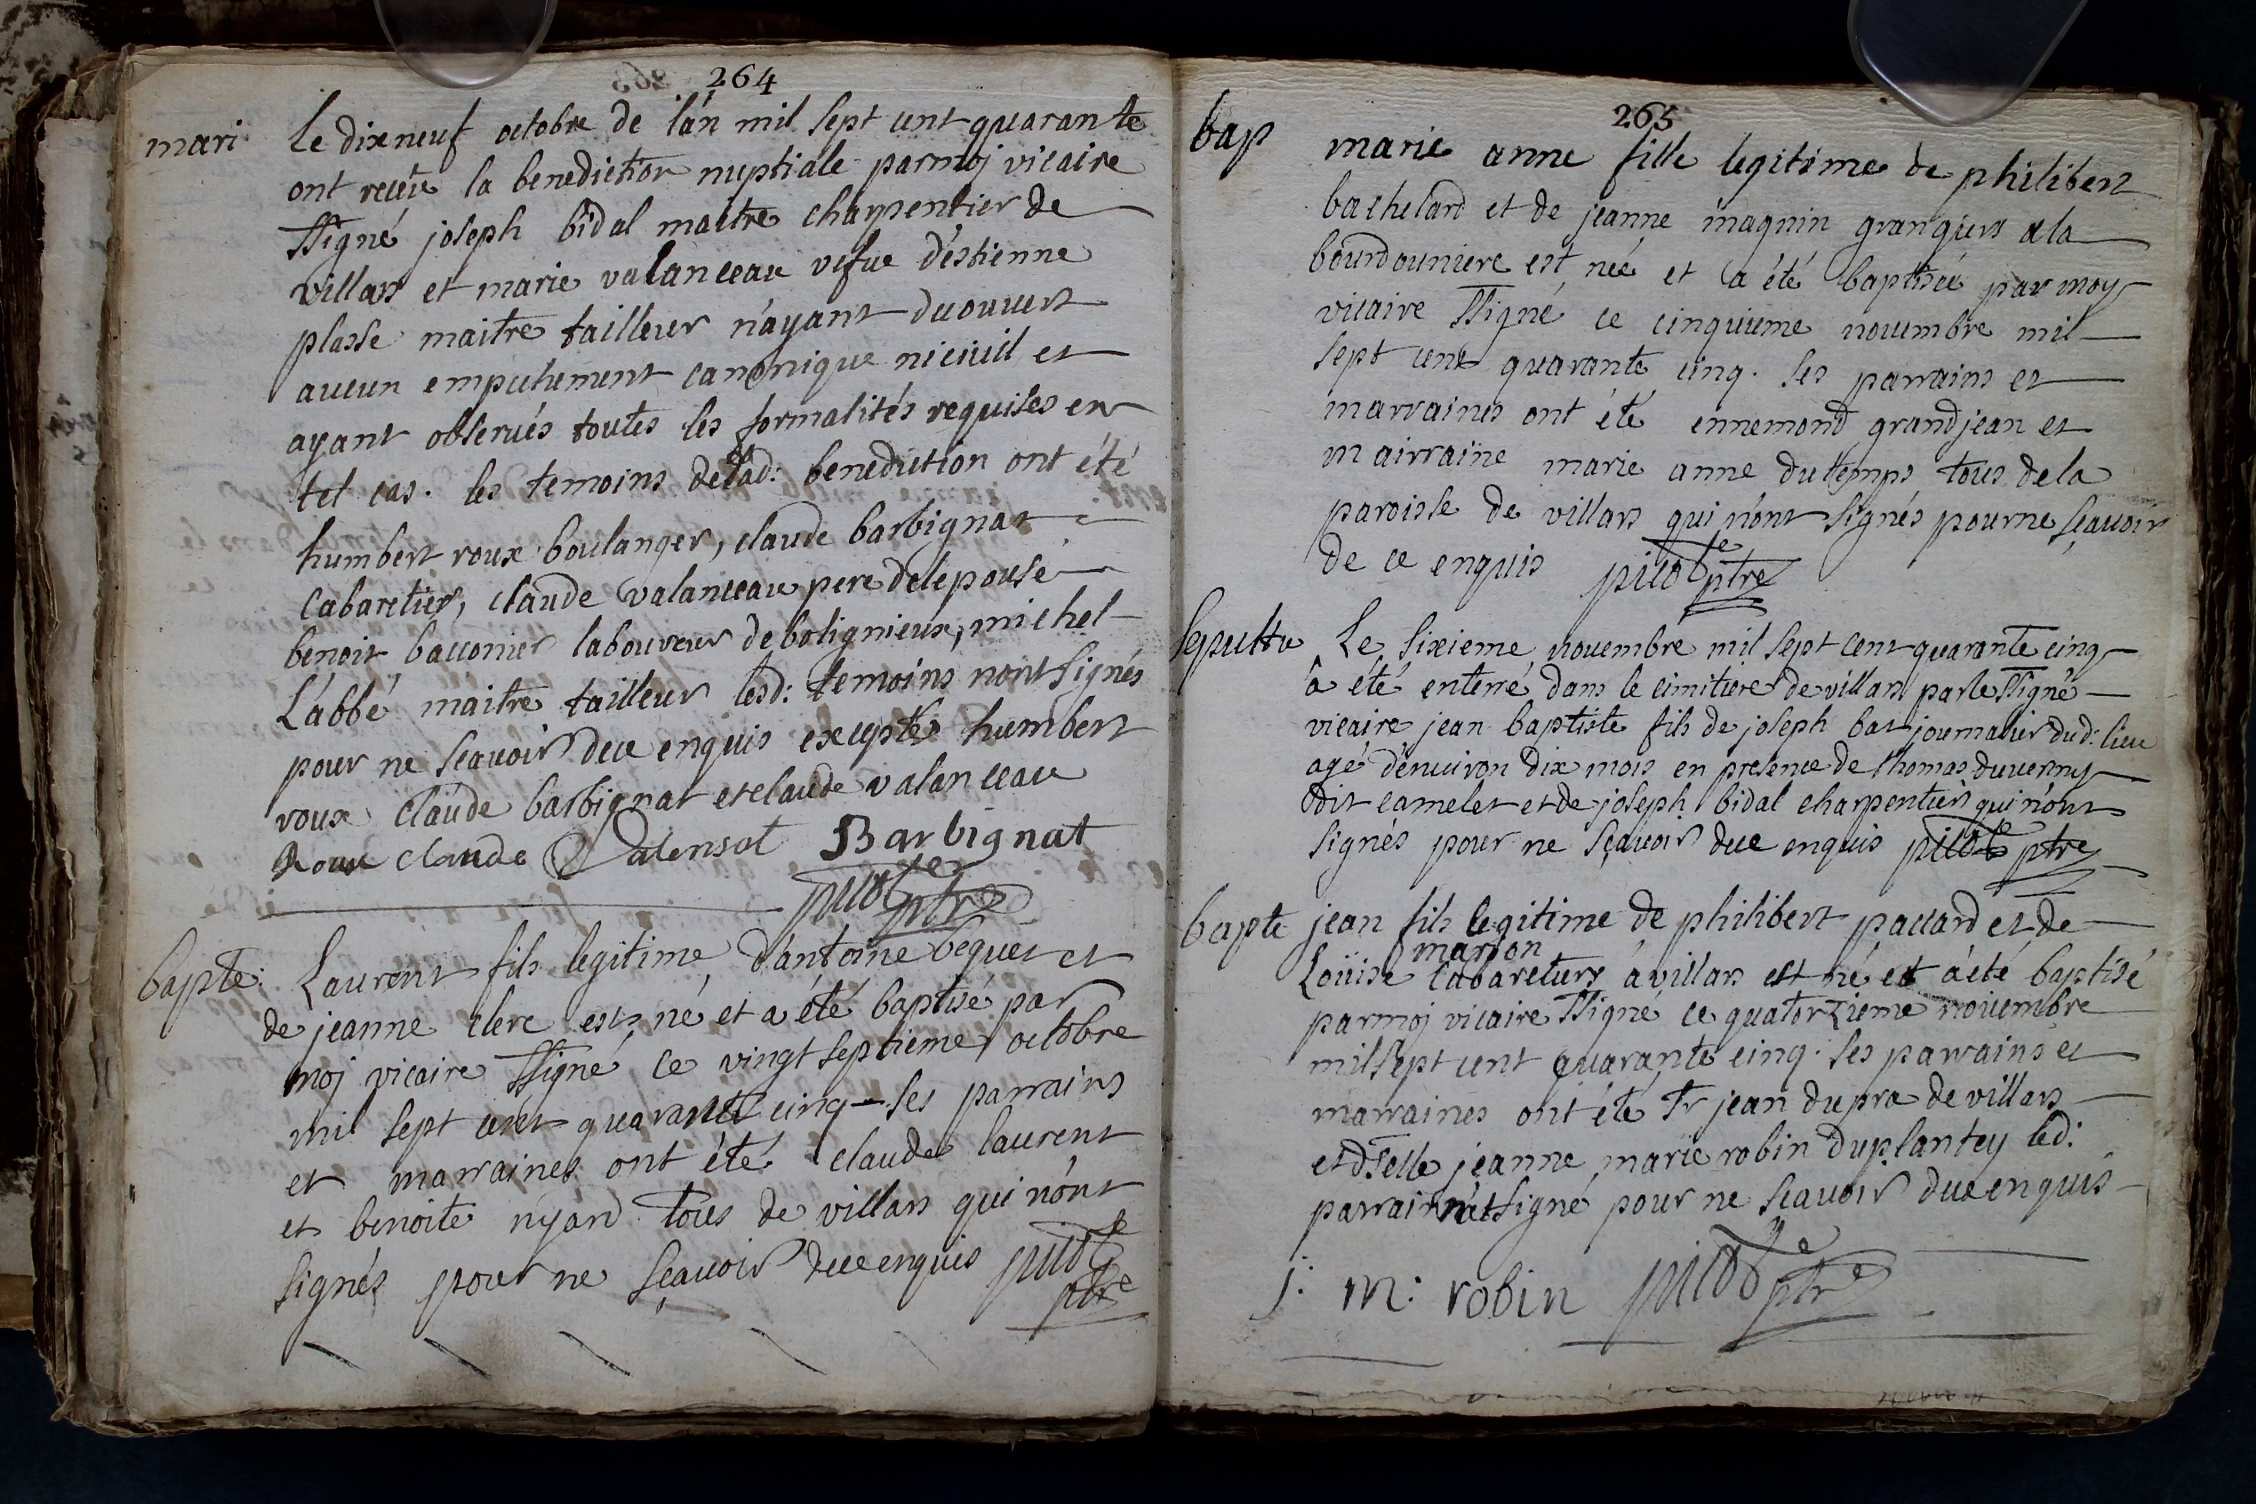 264
mari Le dixneuf octobre de l'án mil sept cent quarante
ont recue la benediction nuptiale parmoj vicaire
ssigné joseph bidal maitre charpentier de
villars et marie valanceau vefue d'estienne
plasse maitre tailleur n'ayant decouuert
aucun empechement canonique niciuil et
ayant obserués toutes les formalités requises en
tel cas. les temoins de lad: benediction ont été
humbert roux boulanger, claude barbignat
cabaretier, claude valanceau pere delepouse
benoit bacconier laboureur de bolignieux, michel
L'abbé maitre tailleur lesd: temoins nont signés
pour ne sçauoir dece enquis exceptés humbert
roux claude barbignat et claude valanceau
Roux claude Valensot Barbignat
picot ptre
bapte: Laurent fils legitime d'antoine beguet et
de jeanne clerc est né et a été baptisé par
moj vicaire ssigné ce vingt septieme octobre
mil sept cent quarante cinq ses parrains
et marraines ont été claude laurent
et benoite nyard tous de villars qui n'ónt
signés pour ne sçauoir dece enquis picot
ptre
265
bap marie anne fille legitime de philibert
bachelard et de jeanne magnin grangers a la
bourdouniere est née et a été baptisée par moy
vicaire ssigné ce cinquieme nouembre mil
sept cent quarante cinq. ses parrains et
marraines ont été ennemond grandjean et
mairraine marie anne dutemps tous de la
paroisse de villars qui n'ónt signés pour ne sçauoir
de ce enquis picot ptre
sepultu Le sixieme nouembre mil sept cent quarante cinq
â été enterré dans le cimitiere de villars par le ssigné
vicaire jean baptiste fils de joseph bat journalier dud: lieu
agé d'enuiron dix mois en presence de thomas duverny
dit camelet et de joseph bidal charpentier qui n'ónt
signés pour ne sçauoir dece enquis picot ptre
bapte jean fils legitime de philibert paccard et de
marion
Loüise cabaretiers a villars est né et a été baptisé
parmoj vicaire ssigné ce quatorzieme nouembre
mil sept cent quarante cinq. ses parrains et
marraines ont été sr jean dupra de villars
et dselle jeanne marie robin duplantey led:
parrain n'at signé pour ne sçauoir dece enquis
j: m: robin picot ptre